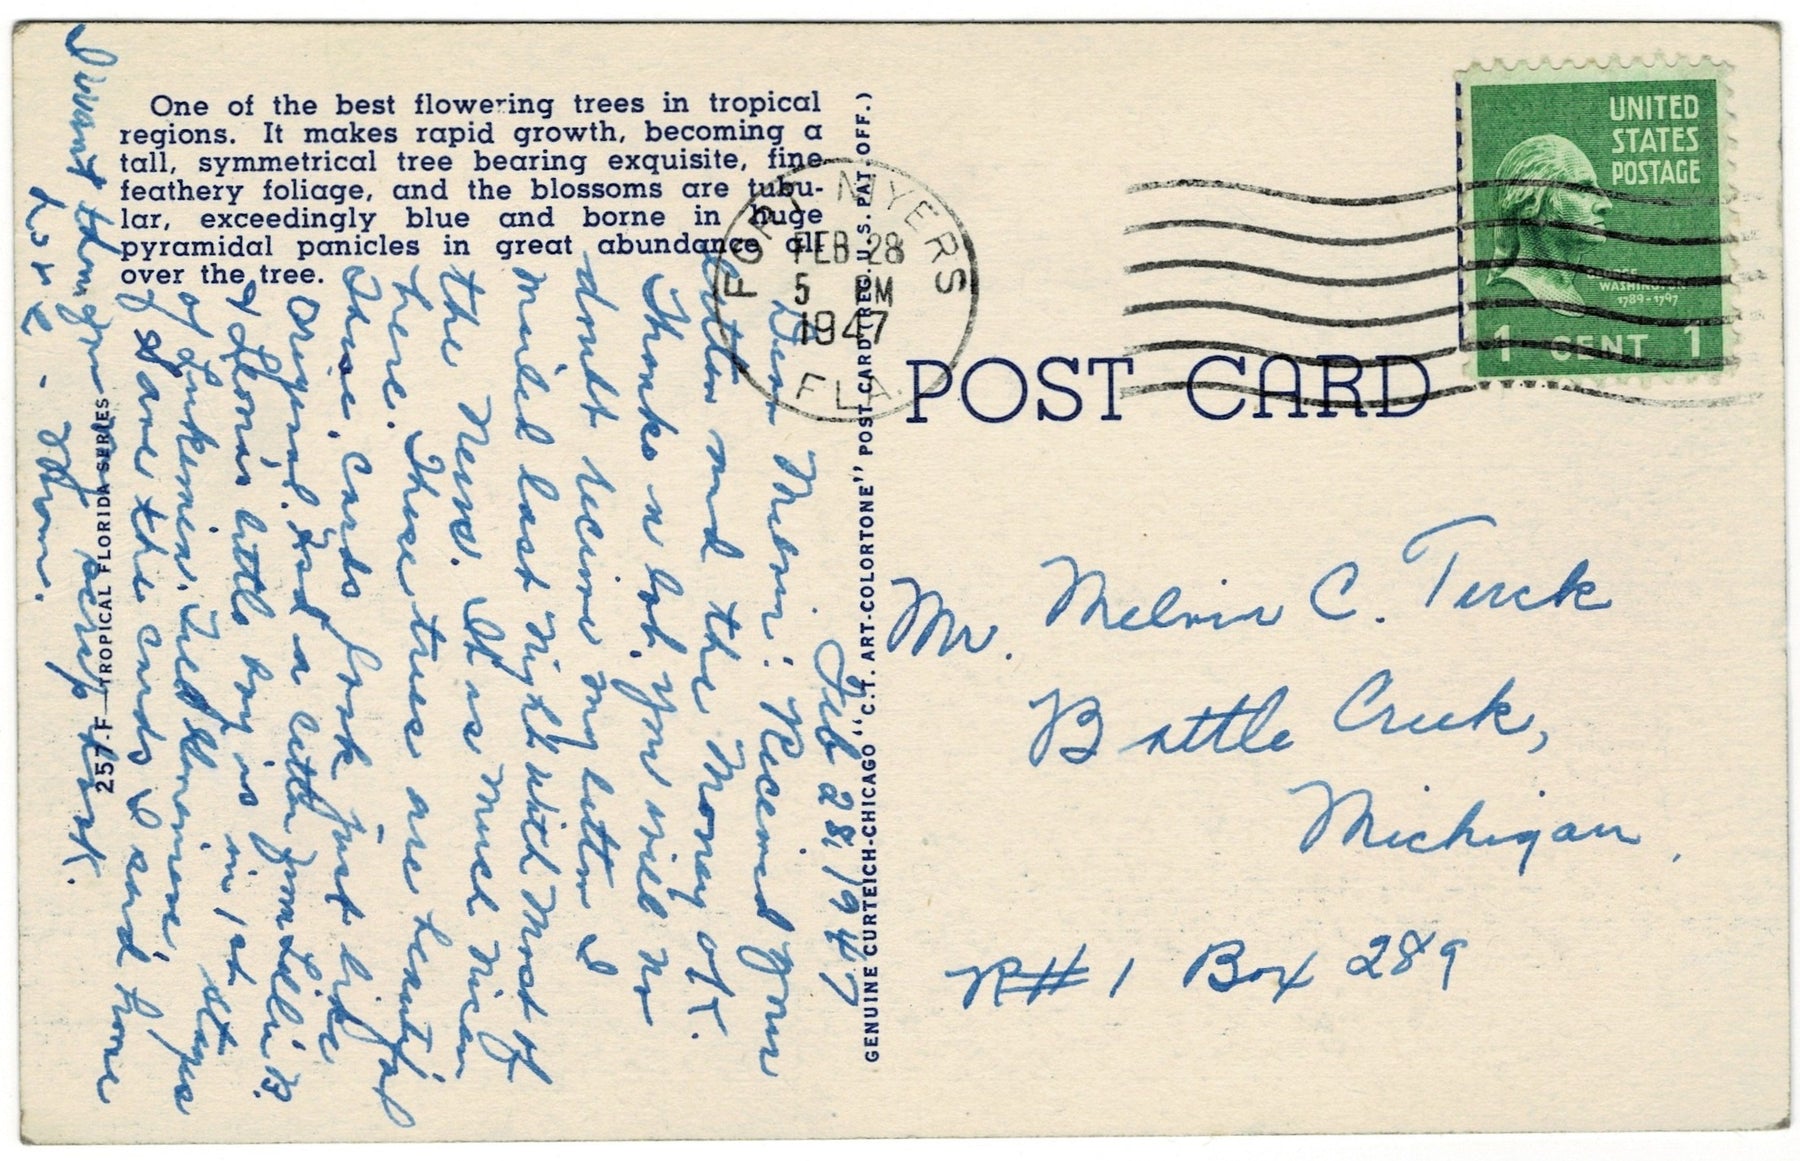 One of the best flowering trees in tropical
regions. It makes rapid growth, becoming a
tall, symmetrical tree bearing exquisite, fine
feathery foliage, and the blossoms are tubu-
lar, exceedingly blue and borne in huge
pyramidal panicles in great abundance all
over the tree.
257-F—TROPICAL FLORIDA SERIES
GENUINE CURTEICH-CHICAGO "C.T. ART-COLORTONE" POST CARD (REG. U.S. PAT. OFF.)
FORT MYERS
FEB 28
5 PM
1947
FLA.
UNITED
STATES
POSTAGE
GEORGE
WASHINGTON
1789-1797
1 CENT 1
POST CARD
Mr. Melvin C. Turck
Battle Creek,
Michigan.
R#1 Box 289
Feb 28, 1947
Dear Melvin: Received your
letter and the money O.K.
Thanks a lot. You will no
doubt receive my letter I
mailed last night with most of
the News. It is much nicer
here. These trees are beautiful
These cards look just like
original. Had a letter from
& little boy is in 1st
of
Save the cards I send home
I want them for my scrap book.
here - Mom.